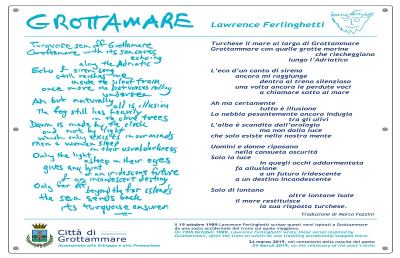 GROTTAMARE
Turquoise sea off Grottamare
Grottamare with its sea caves
echoing
along the Adriatic
Echo of siren song
still reaching me
inside the silent train
once more the lost voices calling
undersea
Ah but naturally
all is illusion
The fog still has heavily
the olive trees
Dawn is made by the clock
and not by light
which only exists in our minds
Men & women sleep
in their usual darkness
Only the light
asleep in their eyes
gives any hint
of an iridescent future
of an incandescent destiny
Only far off
beyond the far islands
the sea sends back
its turquoise answer
Lawrence Ferlinghetti
Turchese il mare al largo di Grottammare
Grottammare con quelle grotte marine
che riecheggiano
lungo l'Adriatico
L'eco d'un canto di sirena
ancora mi raggiunge
dentro al treno silenzioso
una volta ancora le perdute voci
a chiamare sotto al mare
Ah ma certamente
tutto è illusione
La nebbia pesantemente ancora indugia
tra gli ulivi
L'alba è scandita dall'orologio
ma non dalla luce
che solo esiste nella nostra mente
Uomini e donne riposano
nella consueta oscurità
Solo la luce
in quegli occhi addormentata
fa allusione
a un futuro iridescente
a un destino incandescente
Solo di lontano
oltre lontane isole
il mare restituisce
la sua risposta turchese.
Traduzione di Marco Fazzini
Città di
Grottammare
Assessorato allo Sviluppo e alla Promozione
Il 19 ottobre 1989 Lawrence Ferlinghetti scrisse questi versi ispirati a Grottammare
24 marzo 2019, nel centenario della nascita del poeta
24 March 2019, on the centenary of the poet's birth